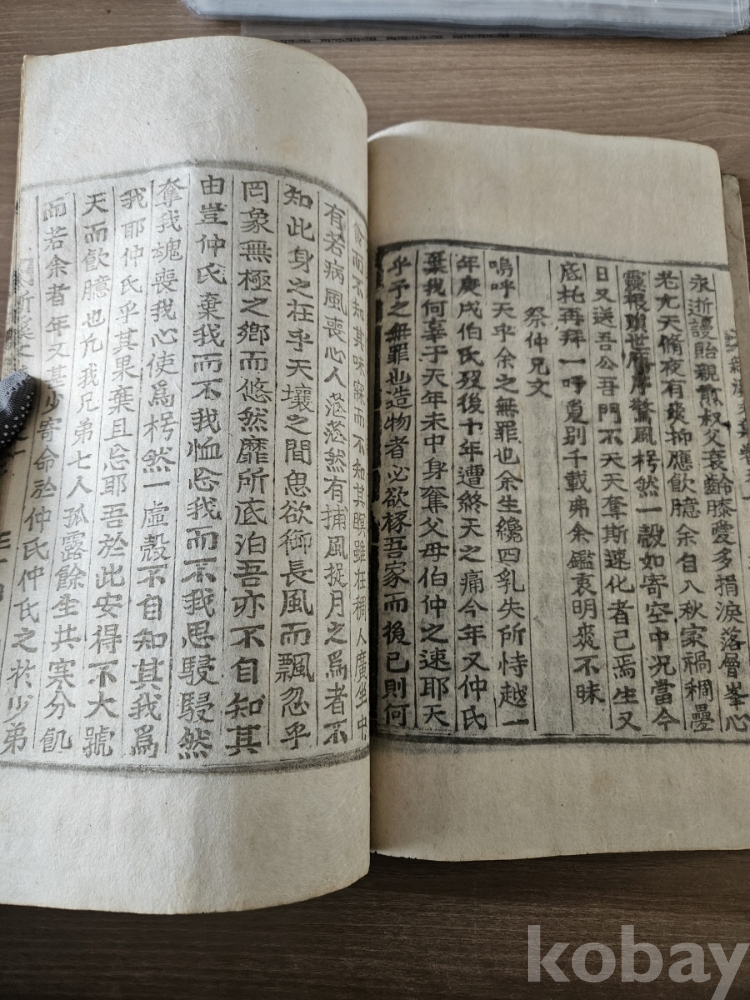 永逝謾貽親慼叔父衰齡滕愛多捐淚落層峯心
老尤天脩夜有淚抑應飮臆余自八秋家禍稠疊
靈根隕世脣摩驚風枵然一殼如寄空中況當今
日又送吾公吾門不天天奪斯速化者已焉生又
底托再拜一呼夐別千載弗余鑑衷明爽不昧
祭仲兄文
嗚呼天乎余之無罪也余生纔四乳失所恃越一
年庚戌伯氏歿後十年遭終天之痛今年又仲氏
棄我何辜于天年未中身奪父母伯仲之速耶天
乎予之無罪也造物者必欲椓吾家而後已則何
食而不知其味寐而不知其瞑雖在稠人廣坐中
有若病風喪心人茫茫然有捕風捉月之爲者不
知此身之在乎天壤之間思欲御長風而飄忽乎
罔象無極之鄕而悠然靡所底泊吾亦不自知其
由豈仲氏棄我而不我恤忘我而不我思駸駸然
奪我魂喪我心使爲枵然一虛殼不自知其我爲
我耶仲氏乎其果棄且忘耶吾於此安得不大號
天而飮臆也尤我兄弟七人孤露餘生共寒分飢
而若余者年又甚少寄命於仲氏仲氏之於少弟
kobay